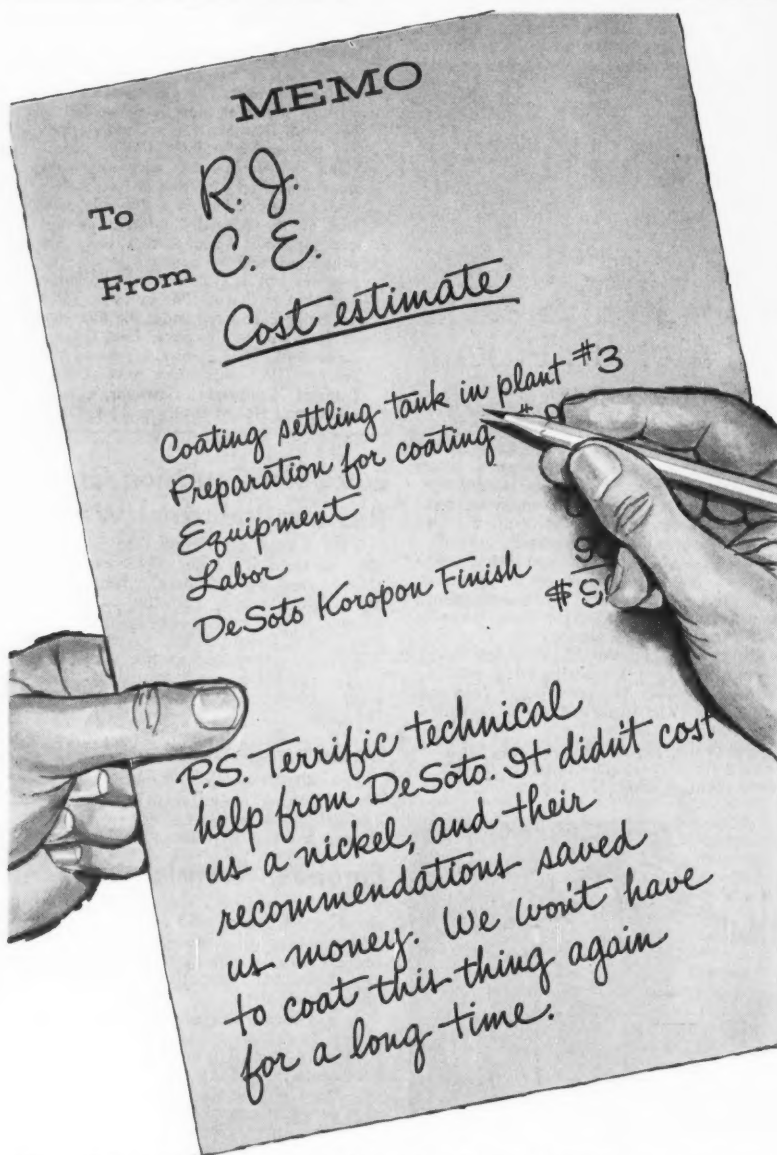 MEMO
To R.J.
From C.E.
Cost estimate
Coating settling tank in plant #3
Preparation for coating
Equipment
Labor
DeSoto Koropon Finish
P.S. Terrific technical
help from DeSoto. It didn't cost
us a nickel, and their
recommendations saved
us money. We won't have
to coat this thing again
for a long time.